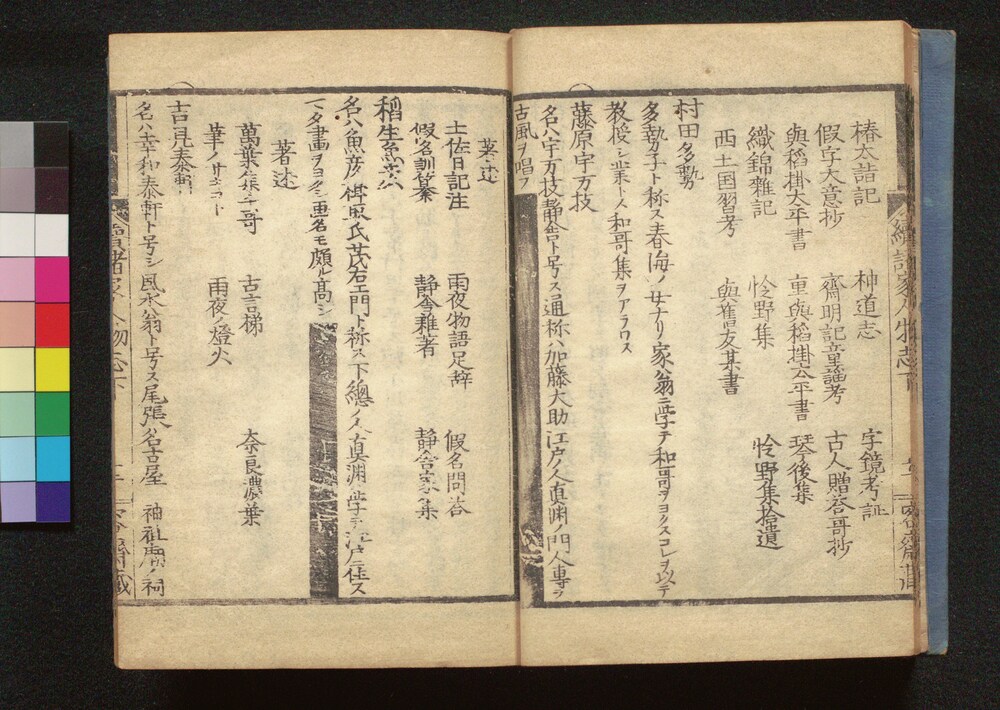 椿太詣記 神道志 字鏡考証
假字大意抄 齋明記童謡考 古人贈答哥抄
與稻掛大平書 重與稻掛太平書 琴後集
織錦雜記 怜野集 怜野集拾遺
西土国習考 與舊友某書
村田多勢
多勢子ト称ス春海ノ女ナリ家翁ニ学テ和哥ヲヨクスコレヲ以テ
教授シ業トス和哥集ヲアラワス
藤原宇万技
名ハ宇万技静舎ト号ス通称ハ加藤大助江戸ノ人真渕ノ門人専ラ
古風ヲ唱フ
著述
土佐日記注 雨夜物語足辞 假名問答
假名訓纂 静舎雜著 静舎家集
稻生魚彦
名ハ魚彦楫取氏茂右エ門ト称ス下總ノ人真渕ニ学テ江戸ニ住ス
マタ畫ヲヨクシ画名モ頗ル高シ
著述
萬葉集千哥 古言梯 奈良濃葉
筆ノサキヨト 雨夜ノ燈火
吉見泰軒
名ハ幸和泰軒ト号シ風水翁ト号ス尾張名古屋 祠
續諸家人物志下